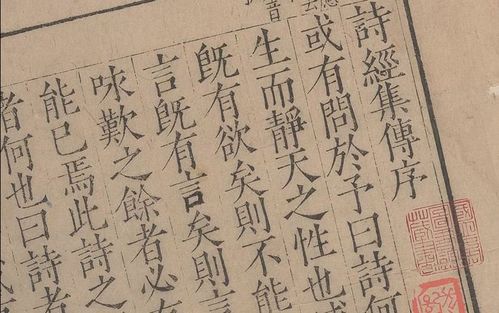 詩經集傳序
或有問於予曰詩何
生而靜天之性也感
既有欲矣則不能
言既有言矣則言
咏歎之餘者必有
能已焉此詩之
者何也曰詩者
音